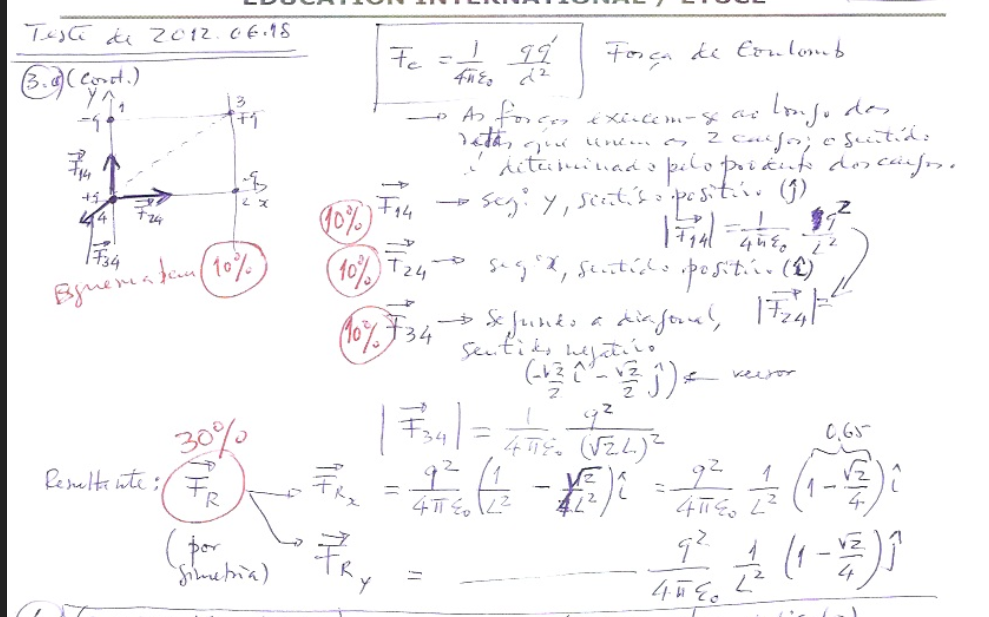 EDUCATION INTERNATIONAL / ETUCE
Teste de 2012.06.18
3. (Cont.)
F_c = 1/4πε₀ qq'/d² Força de Coulomb
→ As forças exercem-se ao longo das
retas que unem as 2 cargas; o sentido
é determinado pelo produto das cargas.
y 1 -q 3 +q
F⃗14 +q 4 F⃗24 -q 2 x
F⃗34
Esquema 10%
10% F⃗14 → seg: y, sentido positivo (ĵ)
|F⃗14| = 1/4πε₀ q²/L²
10% F⃗24 → seg: x, sentido positivo (î)
|F⃗24| =
10% F⃗34 → segundo a diagonal,
sentido negativo
(-√2/2 î - √2/2 ĵ) ← versor
|F⃗34| = 1/4πε₀ q²/(√2L)²
30%
0,65
Resultante: F⃗R → F⃗Rx = q²/4πε₀ (1/L² - √2/4L²) î = q²/4πε₀ 1/L² (1 - √2/4) î
(por simetria) → F⃗Ry = q²/4πε₀ 1/L² (1 - √2/4) ĵ